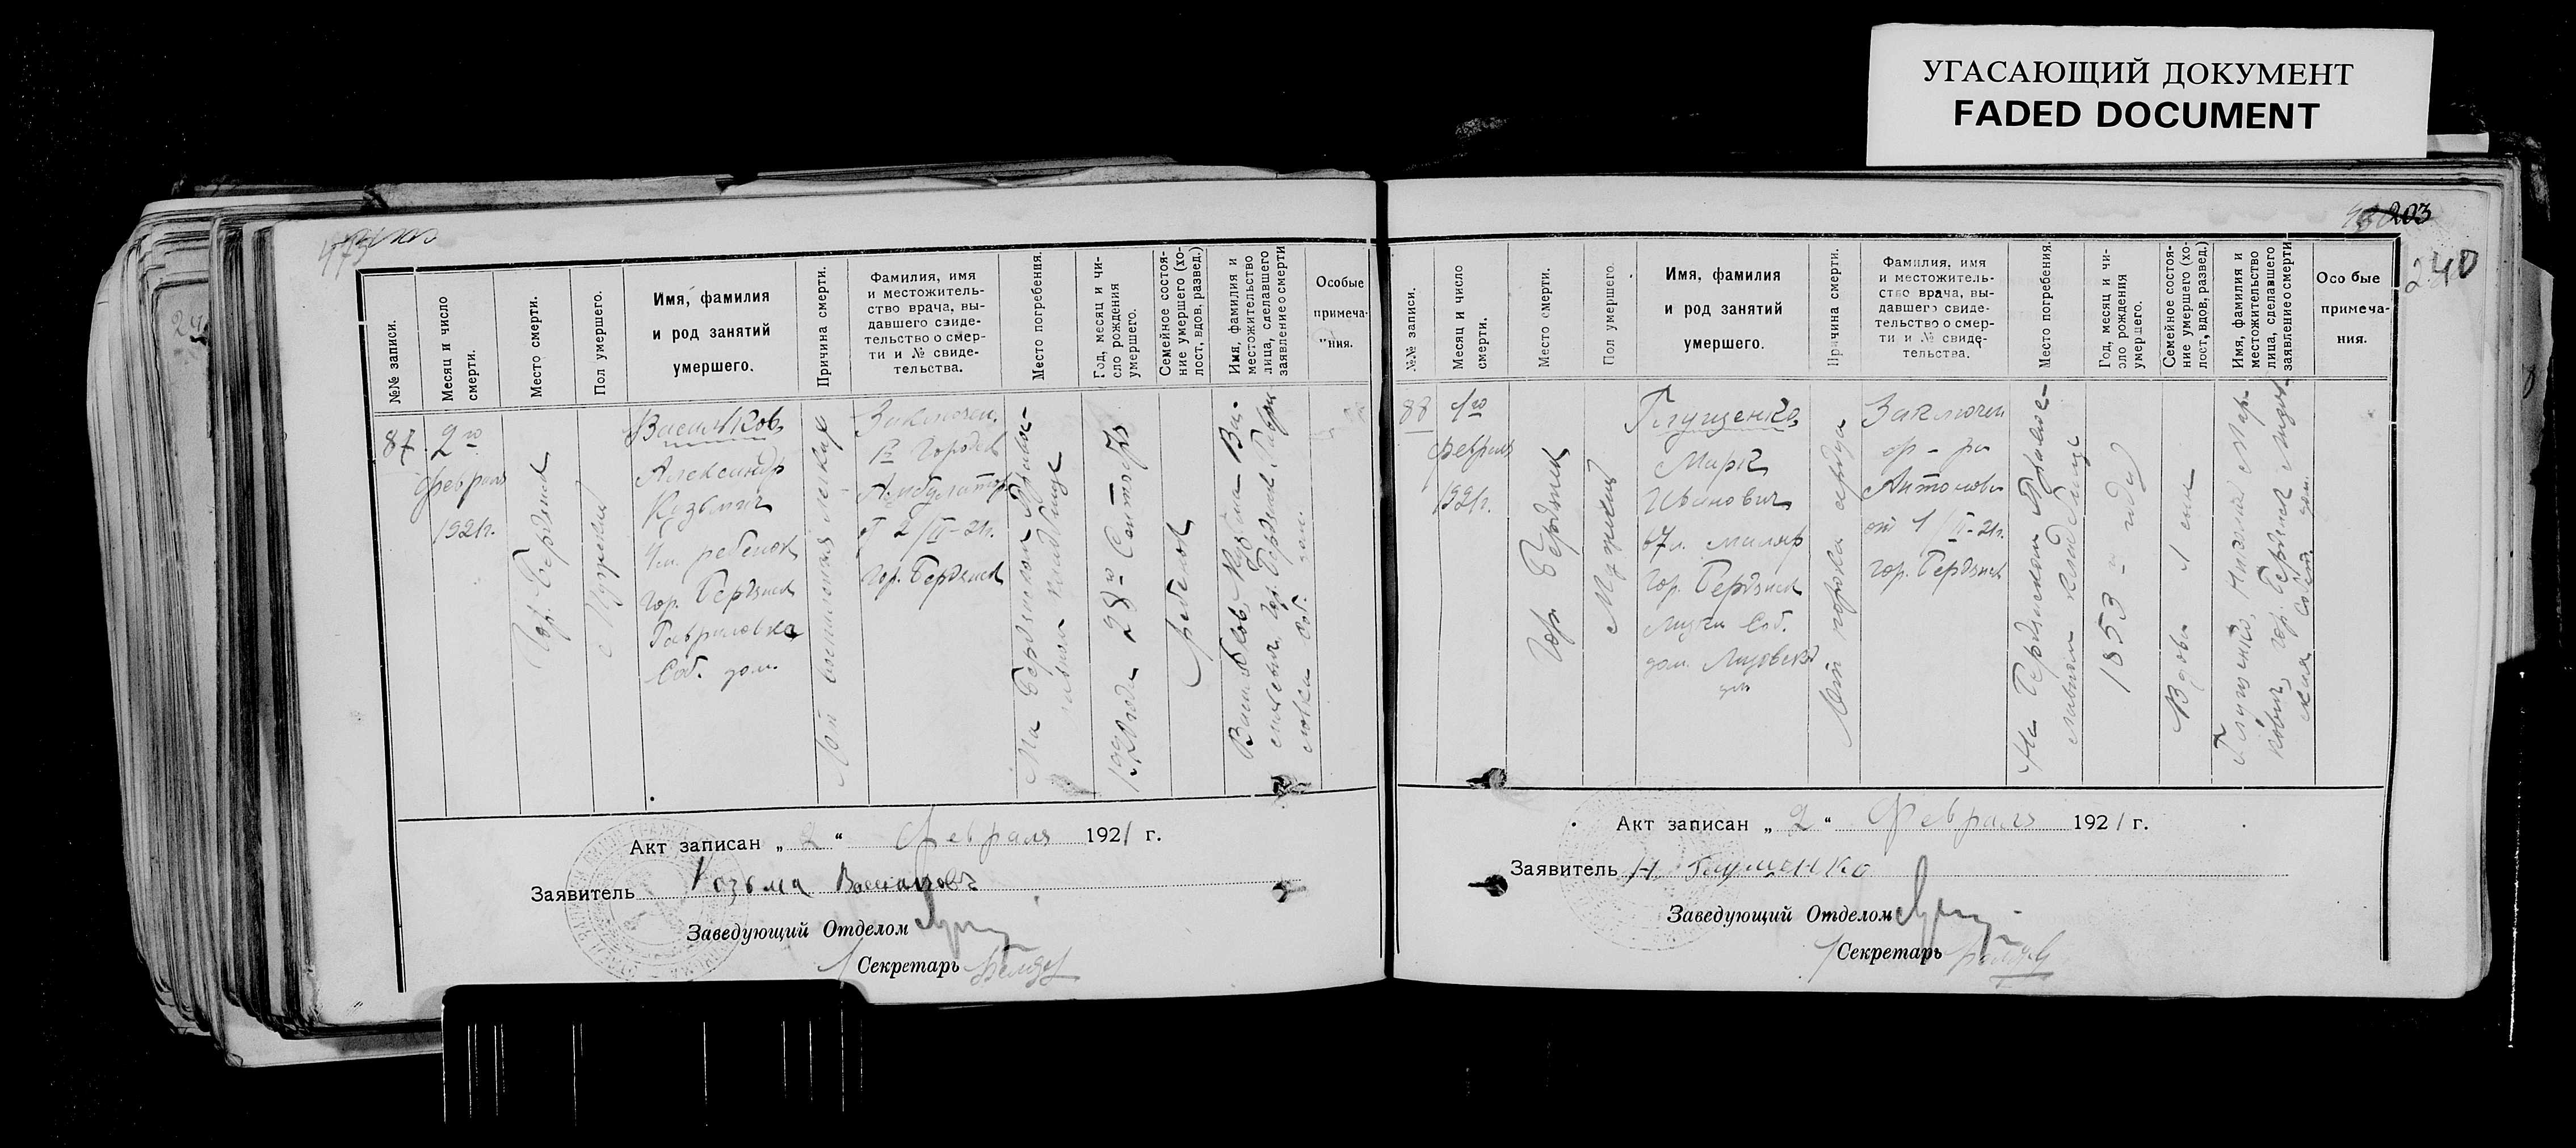 УГАСАЮЩИЙ ДОКУМЕНТ
FADED DOCUMENT
473
№№ записи.
Месяц и число
смерти.
Место смерти.
Пол умершего.
Имя, фамилия
и род занятий
умершего.
Причина смерти.
Фамилия, имя
и местожитель-
ство врача, вы-
давшего свиде-
тельство о смер-
ти и № свиде-
тельства.
Место погребения.
Год, месяц и чи-
сло рождения
умершего.
Семейное состоя-
ние умершего (хо-
лост, вдов, развед.)
Имя, фамилия и
местожительство
лица, сделавшего
заявление о смерти
Особые
примеча-
ния.
87.
2го
февраля
1921г.
Гор. Бердянск
Мужской
Васильков
Александр
Кузьмич
4м. ребенок
гор. Бердянск
Гавриловка
Соб. дом.
От воспаления легких
Заключен.
Городск
Амбулатор
от 2/II-21г.
гор. Бердянск
На Бердянском Правос-
лавном кладбище
1920 года 28го Сентября
ребенок
Васильков, Кузьма Ва-
сильевич, гор. Бердянск Гаври
ловка Соб. дом.
Акт записан „2“ Февраля 1921 г.
Заявитель Козьма Васильковъ
Заведующий Отделом
Секретарь
203
240
№№ записи.
Месяц и число
смерти.
Место смерти.
Пол умершего.
Имя, фамилия
и род занятий
умершего.
Причина смерти.
Фамилия, имя
и местожитель-
ство врача, вы-
давшего свиде-
тельство о смер-
ти и № свиде-
тельства.
Место погребения.
Год, месяц и чи-
сло рождения
умершего.
Семейное состоя-
ние умершего (хо-
лост, вдов, развед.)
Имя, фамилия и
местожительство
лица, сделавшего
заявление о смерти
Осо бые
примеча-
ния.
88
1го
февраля
1921г.
Гор. Бердянск
Мужской
Глущенко
Марк
Иванович
67л. маляр
гор. Бердянск
Лиски Соб.
дом.
От порока сердца
Заключен
др-ра
Антонова
от 1/II-21г.
гор. Бердянск
На Бердянском Правос-
лавном кладбище
1853 - году
Вдовы
Глущенко, Николай Мар-
кович, гор. Бердянск
Соб. дом.
Акт записан „2“ Февраля 1921 г.
Заявитель Н Глущенко
Заведующий Отделом
Секретарь